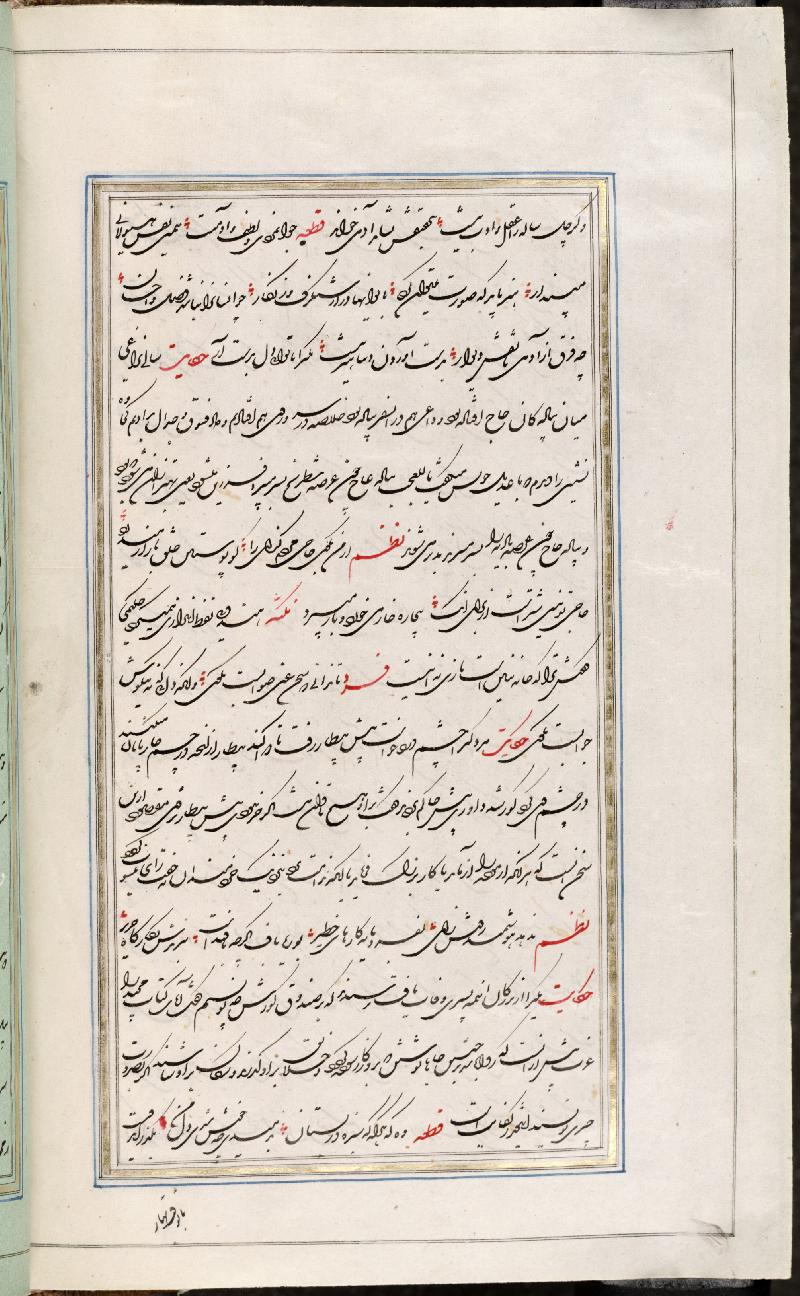 وگر چل ساله را عقل و ادب نیست بتحقیقش نشاید آدمی خواند قطعه جوانمردی و لطفست آدمیت همین نقش هیولانی
مپندار هنر باید که صورت میتوان کرد بایوانها در از شنگرف و زنگار چو انسانرا نباشد فضل و احسان
چه فرق از آدمی تا نقش دیوار بدست آوردن دنیا هنر نیست یکی را گر توانی دل بدست آر حکایت سالی نزاعی
میان پیاده کان حاج افتاده بود و داعی هم در آن سفر پیاده بود در سر و روی هم افتادیم و داد فسوق و جدال بدادیم کجاوه
نشینی را دیدم که با عدیل خویش میگفت یا للعجب پیاده عاج چون عرصه شطرنج بسر میبرد فرزین میشود یعنی بهتر از آن میشود که بود
و پیاده حاج چون عرصه بادیه را بسر میبرد بدتر می شوند نظم از من بگوی حاجی مردم گزای را کو پوستین خلق بازار میدرد
حاجی تو نیستی شترست از برای آنک بیچاره خار می خورد و بار میبرد نکته هندوی نفط اندازی همی آموخت حکیمی
گفتش ترا که خانه نیین است بازی نه اینست فرد تا ندانی که سخن عین صوابست مگوی وانچه دانی که نه نیکوش
جوابست مگوی حکایت مردکی را چشم درد خاست پیش بیطار رفت تا دوا کند بیطار از آنچه در چشم چارپایان میکشند
در چشم وی کشید کور شد داوری پیش حاکم بردند گفت برو هیچ تاوان نیست اگر خر نبودی پیش بیطار نرفتی مقصود ازین
سخن آنست که هر آنکه نا آزموده را کار بزرگ فرماید با آنکه ندامت برد بنزدیک خردمندان بخفت رای منسوب گردد
نظم ندهد هوشمند روشن رای بفرومایه کارهای خطیر بوریا باف اگرچه بافنداست نبرندش بکارگاه حریر
حکایت یکی را از بزرگان ائمه پسری وفات یافت پرسیدند که بر صندوق گورش چه نویسیم گفت آیات کتاب مجید را
عزت بیش از آنست که روا باشد بر چنین جایها نوشتن که بروزگار سوده گردد و خلایق برو گذرند و سگان برو شاشند اگر بضرورت
چیزی نویسند اینقدر کفایت است قطعه وه که هرگه که سبزه در بستان بدمیدی چه خوش شدی دل من بگذر ای دوست
تا بوقت بهار